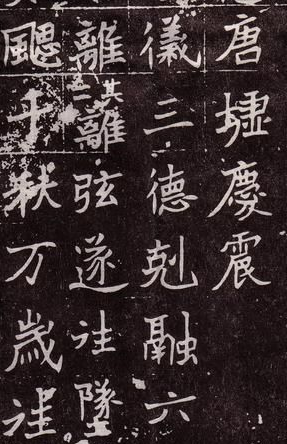 唐墟慶震
儀三德剋融六
離其二離弦遂往墜
颸千秋万歲往